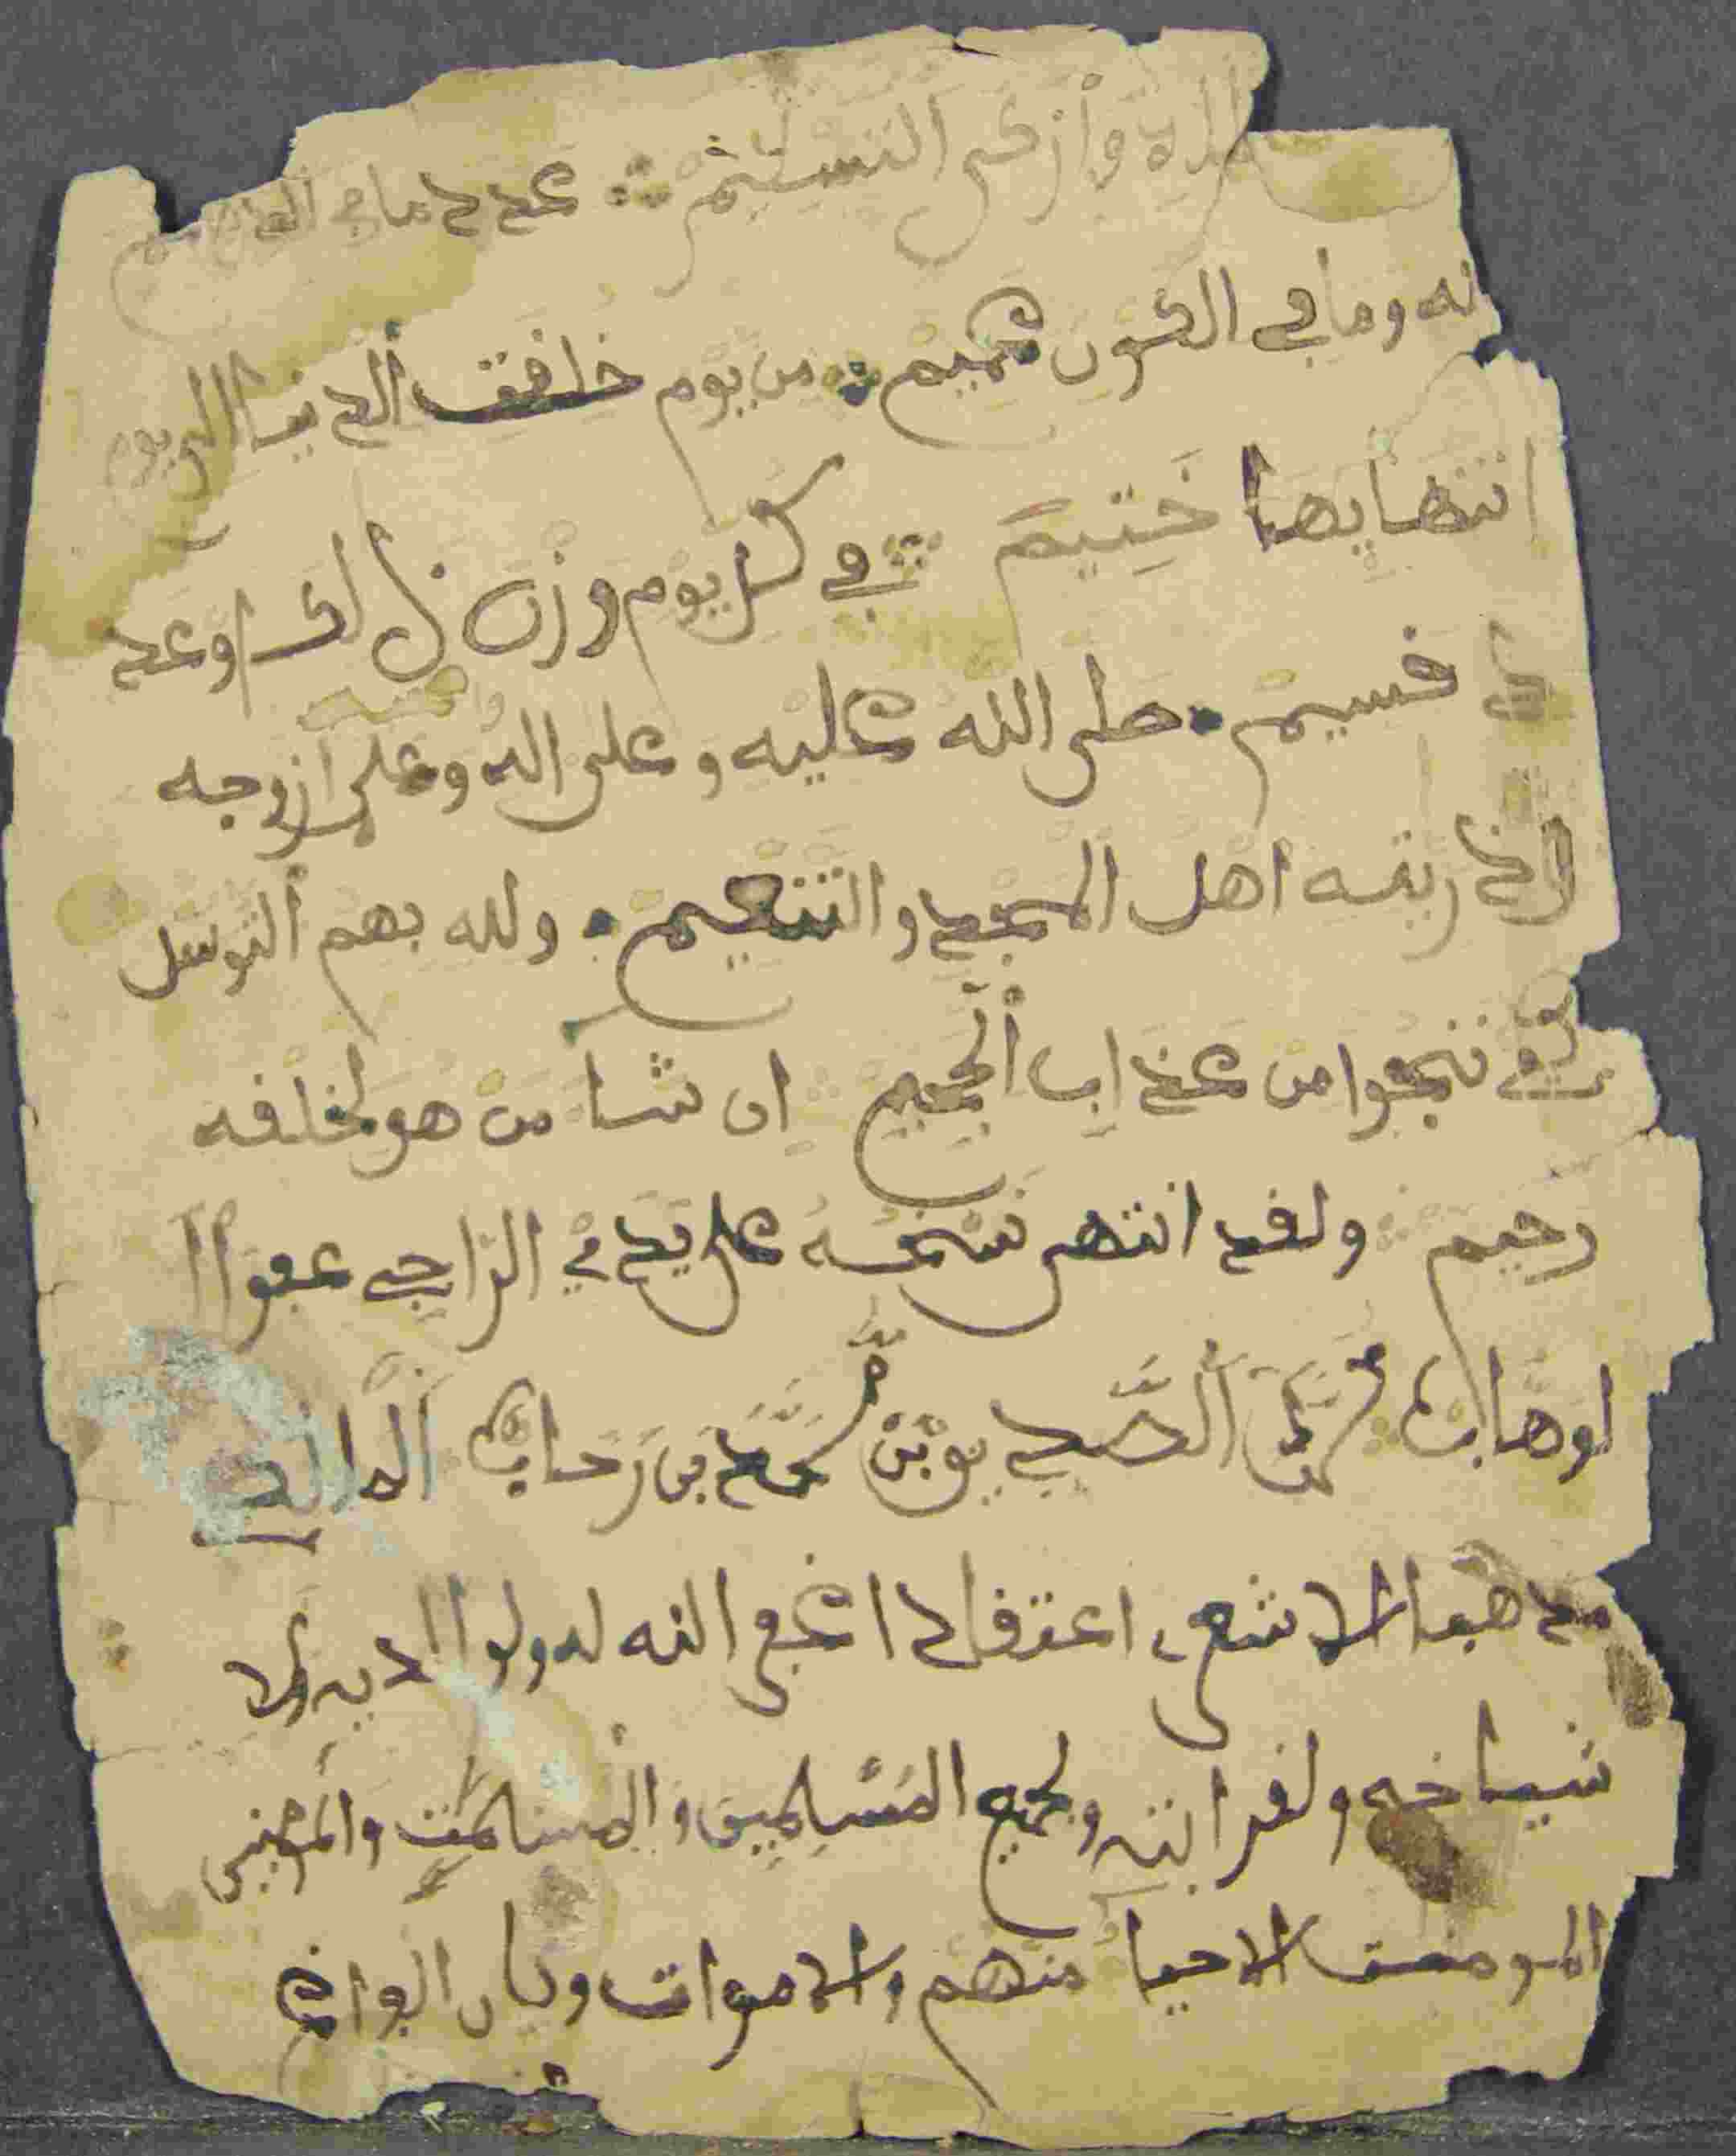 وأزكى التسليم عدد ما في
وما في الكون عميم من يوم خلفت الدنيا الى يوم
انتها بها ختيم في كل يوم وزن ذالك وعد
فسيم صلى الله عليه وعلى اله وعلى أزوجه
اهل المجد والتنعيم ولله بهم التوسل
ننجوا من عذاب الجحيم ان شا من هو لخلفه
رحيم ولفد انتهى نسخه على يدي الراجي عفو ا
لوهاب محمد الصديق بن محمد بن رحاب
مذهبا الاشعري اعتفادا غفر الله له ولوالديه ولا
شياخه ولفرابته ولجميع المسلمين والمسلمت والمومنين
المومنت الاحيا منهم والاموات وكان الفراغ